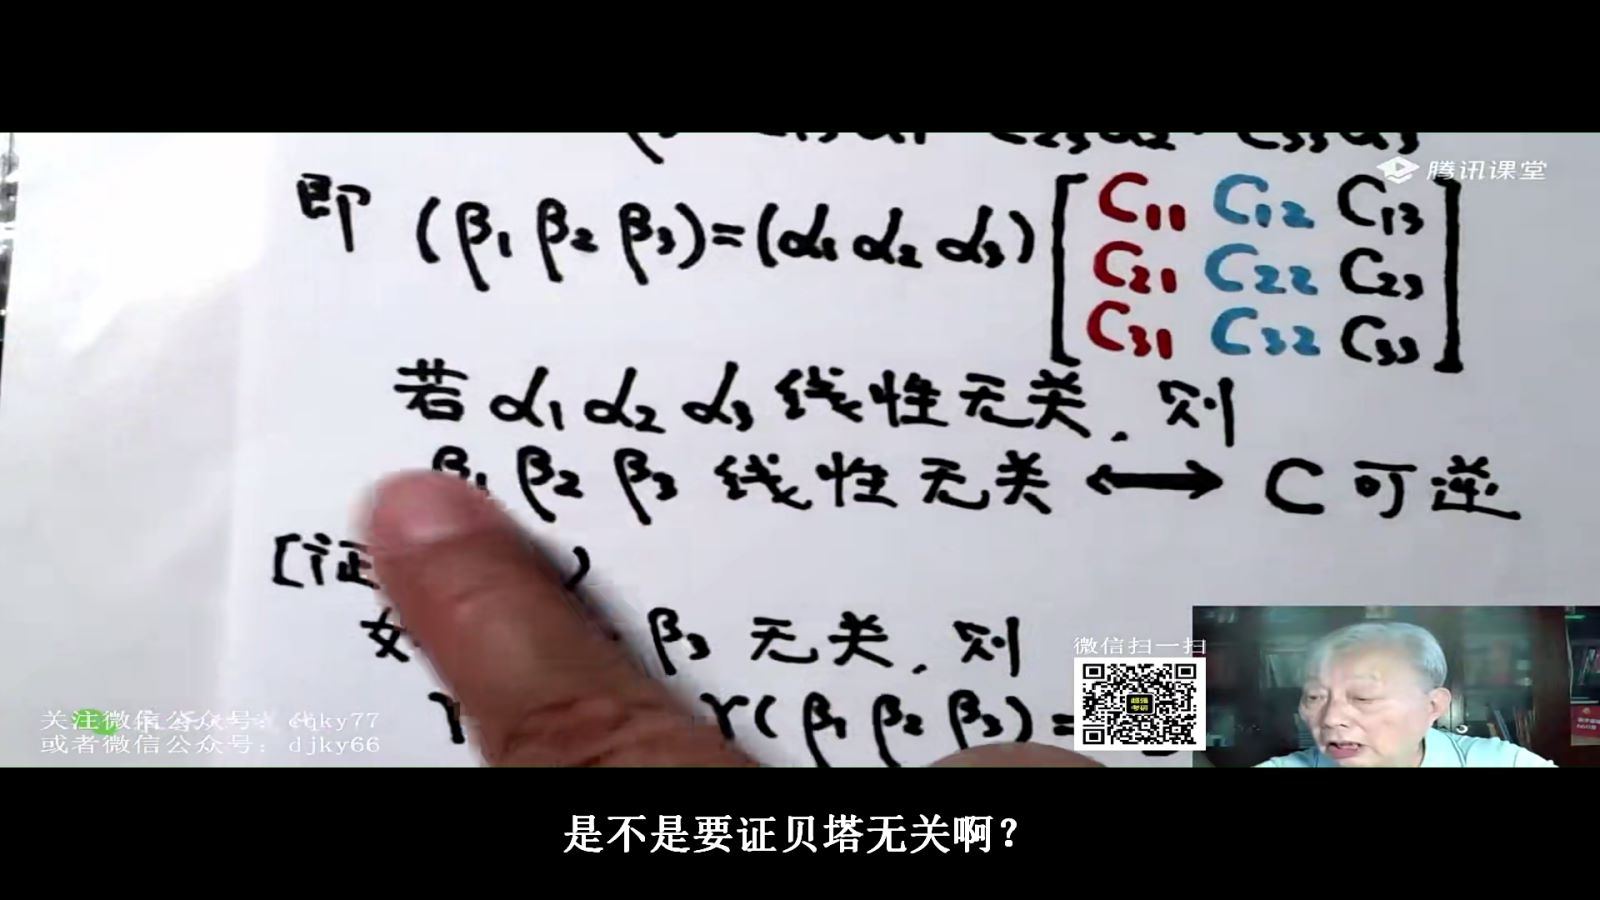 腾讯课堂
即 (β1 β2 β3)=(α1 α2 α3) [C11 C12 C13
C21 C22 C23
C31 C32 C33]
若 α1 α2 α3 线性无关, 则
β1 β2 β3 线性无关 ⟷ C 可逆
[证
β3 无关, 则
r(β1 β2 β3)=
微信扫一扫
关注微信公众号: cqky77
或者微信公众号: djky66
是不是要证贝塔无关啊？